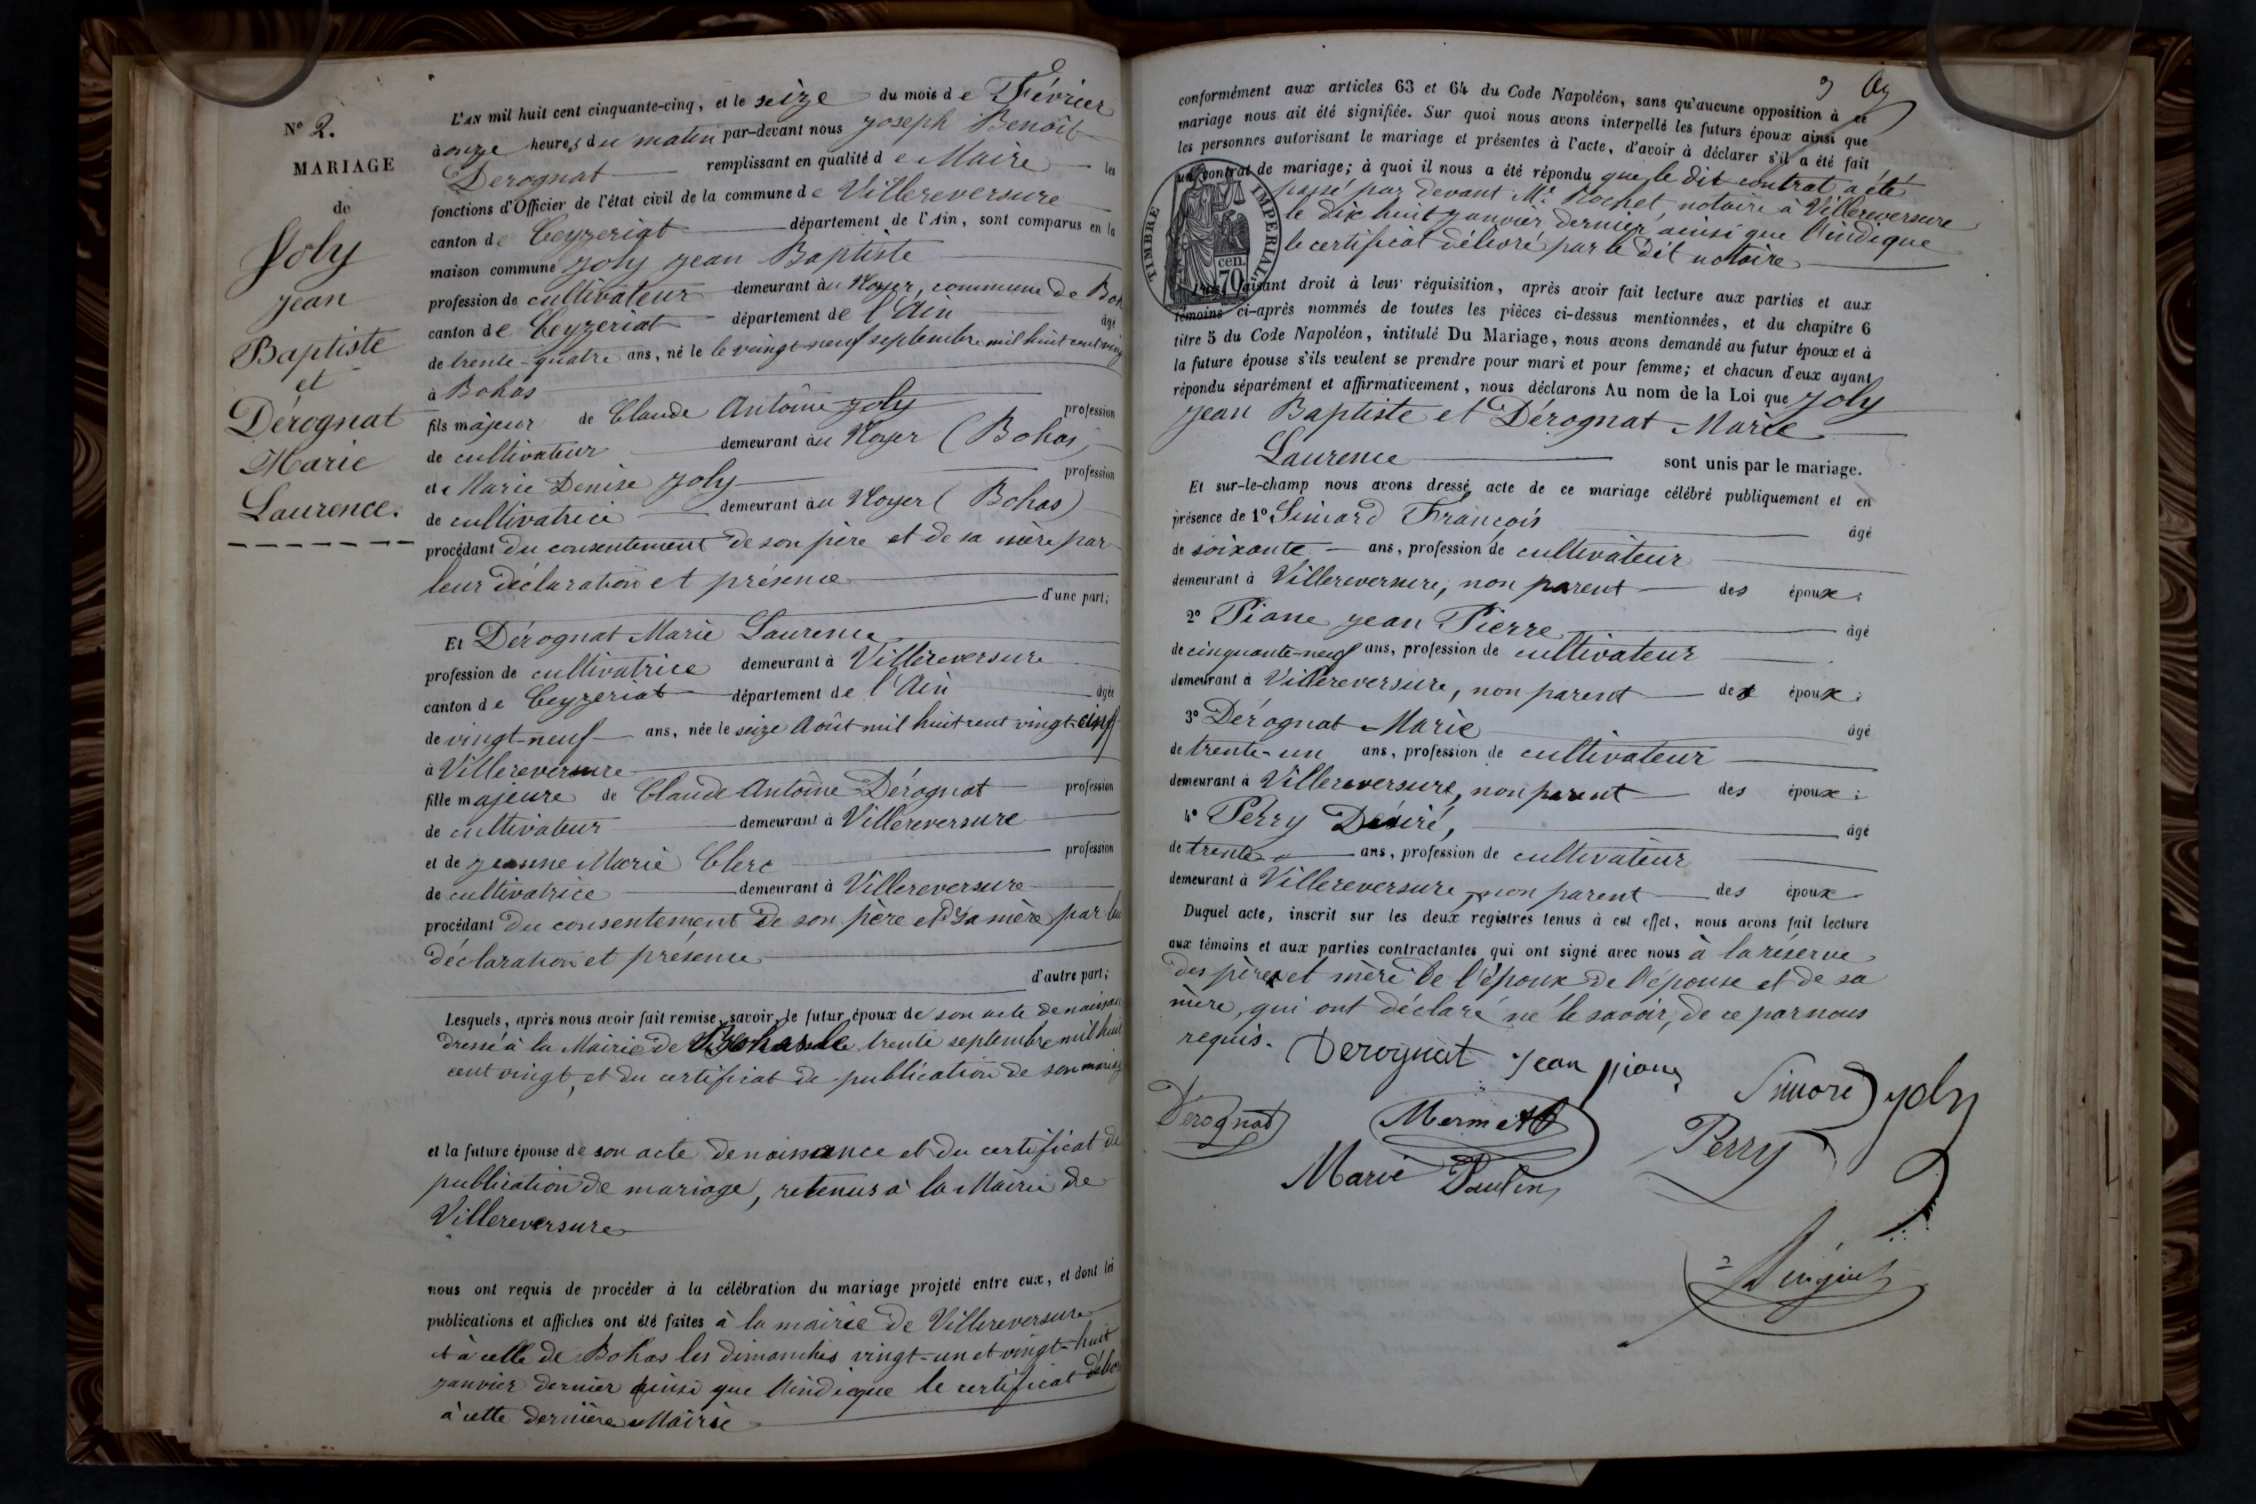 N° 2.
MARIAGE
de
Joly
Jean
Baptiste
et
Dérognat
Marie
Laurence.
L'AN mil huit cent cinquante-cinq, et le seize du mois de Février
à onze heures du matin par-devant nous Joseph Benoît
Derognat remplissant en qualité de Maire les
fonctions d'Officier de l'état civil de la commune de Villereversure
canton de Ceyzeriat département de l'Ain, sont comparus en la
maison commune Joly Jean Baptiste
profession de cultivateur demeurant au Noyer, commune de Boh
canton de Ceyzeriat département de l'Ain âgé
de trente-quatre ans, né le le vingt-neuf septembre mil huit cent ving
à Bohas
fils majeur de Claude Antoine Joly profession
de cultivateur demeurant au Noyer (Bohas)
et de Marie Denise Joly profession
de cultivatrice demeurant au Noyer (Bohas)
procédant du consentement de son père et de sa mère par
leur déclaration et présence
d'une part;
Et Dérognat Marie Laurence
profession de cultivatrice demeurant à Villereversure
canton de Ceyzeriat département de l'Ain âgée
de vingt-neuf ans, née le seize Août mil huit cent vingt-cinq
à Villereversure
fille majeure de Claude Antoine Dérognat profession
de cultivateur demeurant à Villereversure
et de Jeanne Marie Clerc profession
de cultivatrice demeurant à Villereversure
procédant du consentement de son père et de sa mère par leur
déclaration et présence
d'autre part;
Lesquels, après nous avoir fait remise, savoir, le futur époux de son acte de naissan
dressé à la Mairie de Bohas le trente septembre mil huit
cent vingt, et du certificat de publication de son mariag
et la future épouse de son acte de naissance et du certificat de
publication de mariage, retenus à la Mairie de
Villereversure
nous ont requis de procéder à la célébration du mariage projeté entre eux, et dont les
publications et affiches ont été faites à la mairie de Villereversure
et à celle de Bohas les dimanches vingt-un et vingt-huit
janvier dernier ainsi que l'indique le certificat délivr
à cette dernière Mairie
3
conformément aux articles 63 et 64 du Code Napoléon, sans qu'aucune opposition à ce
mariage nous ait été signifiée. Sur quoi nous avons interpellé les futurs époux ainsi que
les personnes autorisant le mariage et présentes à l'acte, d'avoir à déclarer s'il a été fait
un contrat de mariage; à quoi il nous a été répondu que le dit contrat a été
passé par devant Me Rochet notaire à Villereversure
le dix huit janvier dernier ainsi que l'indique
le certificat délivré par le dit notaire
TIMBRE IMPERIAL
70 cen.
faisant droit à leur réquisition, après avoir fait lecture aux parties et aux
témoins ci-après nommés de toutes les pièces ci-dessus mentionnées, et du chapitre 6
titre 5 du Code Napoléon, intitulé Du Mariage, nous avons demandé au futur époux et à
la future épouse s'ils veulent se prendre pour mari et pour femme; et chacun d'eux ayant
répondu séparément et affirmativement, nous déclarons Au nom de la Loi que Joly
Jean Baptiste et Dérognat Marie
Laurence sont unis par le mariage.
Et sur-le-champ nous avons dressé acte de ce mariage célébré publiquement et en
présence de 1° Simard François âgé
de soixante ans, profession de cultivateur
demeurant à Villereversure, non parent des époux;
2° Piane Jean Pierre âgé
de cinquante-neuf ans, profession de cultivateur
demeurant à Villereversure, non parent des époux;
3° Dérognat Marie âgé
de trente-un ans, profession de cultivateur
demeurant à Villereversure, non parent des époux;
4° Perry Désiré, âgé
de trente ans, profession de cultivateur
demeurant à Villereversure, non parent des époux
Duquel acte, inscrit sur les deux registres tenus à cet effet, nous avons fait lecture
aux témoins et aux parties contractantes qui ont signé avec nous à la réserve
des père et mère de l'époux de l'épouse et de sa
mère, qui ont déclaré ne le savoir, de ce par nous
requis.
Derognat Jean piane Simard Joly
Dérognat Mermet Perry
Marie Paulin